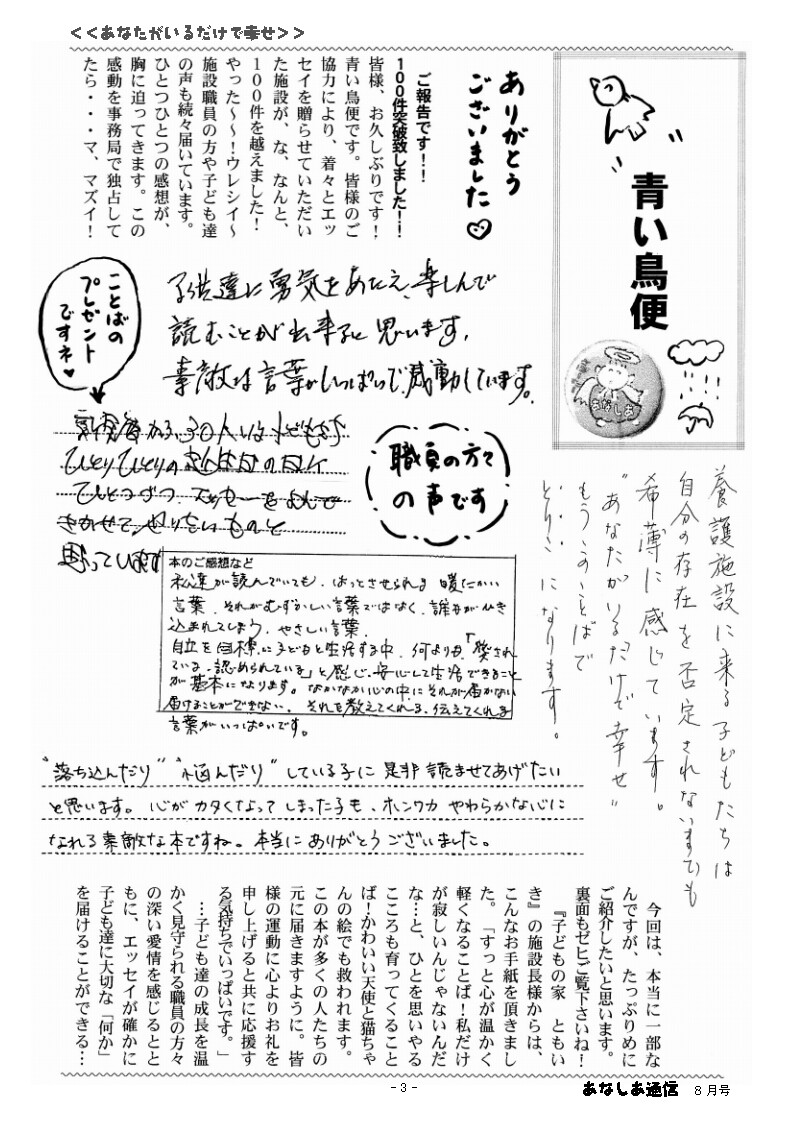 <<あなたがいるだけで幸せ>>
青い鳥便
あなしあ
ありがとう
ございました
ご報告です!!
100件突破致しました!!
皆様、お久しぶりです!
青い鳥便です。皆様のご
協力により、着々とエッ
セイを贈らせていただい
た施設が、な、なんと、
100件を越えました!
やった~~!ウレシイ~
施設職員の方や子ども達
の声も続々届いています。
ひとつひとつの感想が、
胸に迫ってきます。この
感動を事務局で独占して
たら・・・マ、マズイ!
子供達に勇気をあたえ、楽しんで
読むことが出来ると思います。
素敵な言葉がいっぱいで、感動しています。
ことばの
プレゼント
ですネ♥
ひとりひとりの
ひとつづつ、エッセーをよんで
きかせてやりたいものと
思っています
職員の方々
の声です
養護施設に来る子どもたちは
自分の存在を否定されないまでも
希薄に感じています。
"あなたがいるだけで幸せ"
もうこのことばで
とりこになります。
本のご感想など
私達が読んでいても、はっとさせられる 暖かい
言葉、それがむずかしい言葉ではなく、誰もが引き
込まれてしまう、やさしい言葉。
自立を目標に子どもと生活する中、何よりも「愛され
ている、認められている」と感じ、安心して生活できること
が基本になります。なかなか心の中にそれが届かない
届けることができない、それを教えてくれる、伝えてくれる
言葉がいっぱいです。
"落ち込んだり" "悩んだり"している子に是非読ませてあげたい
と思います。心がカタくなってしまった子も、ホンワカやわらかな心に
なれる素敵な本ですね。本当にありがとうございました。
今回は、本当に一部な
んですが、たっぷりめに
ご紹介したいと思います。
裏面もゼヒご覧下さいね!
『子どもの家 ともい
き』の施設長様からは、
こんなお手紙を頂きまし
た。「すっと心が温かく
軽くなることば!私だけ
が寂しいんじゃないんだ
な…と、ひとを思いやる
こころも育ってくること
ば!かわいい天使と猫ちゃ
んの絵でも救われます。
この本が多くの人たちの
元に届きますように。皆
様の運動に心よりお礼を
申し上げると共に応援す
る気持ちでいっぱいです。」
…子ども達の成長を温
かく見守られる職員の方々
の深い愛情を感じるとと
もに、エッセイが確かに
子ども達に大切な「何か」
を届けることができる…
- 3 -
あなしあ通信 8月号